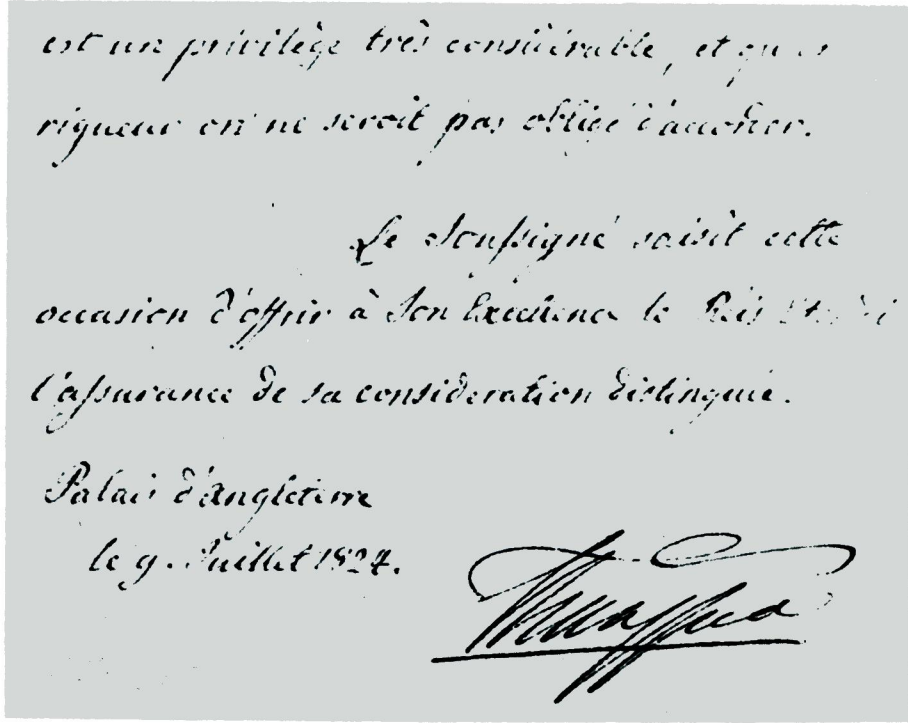 est un privilège très considérable, et
rigueur on ne seroit pas obligé d'accorder.
Le Soussigné saisit cette
occasion d'offrir à Son Excellence le Reis
l'assurance de sa consideration distinguée.
Palais d'Angleterre
le 9. Juillet 1824.